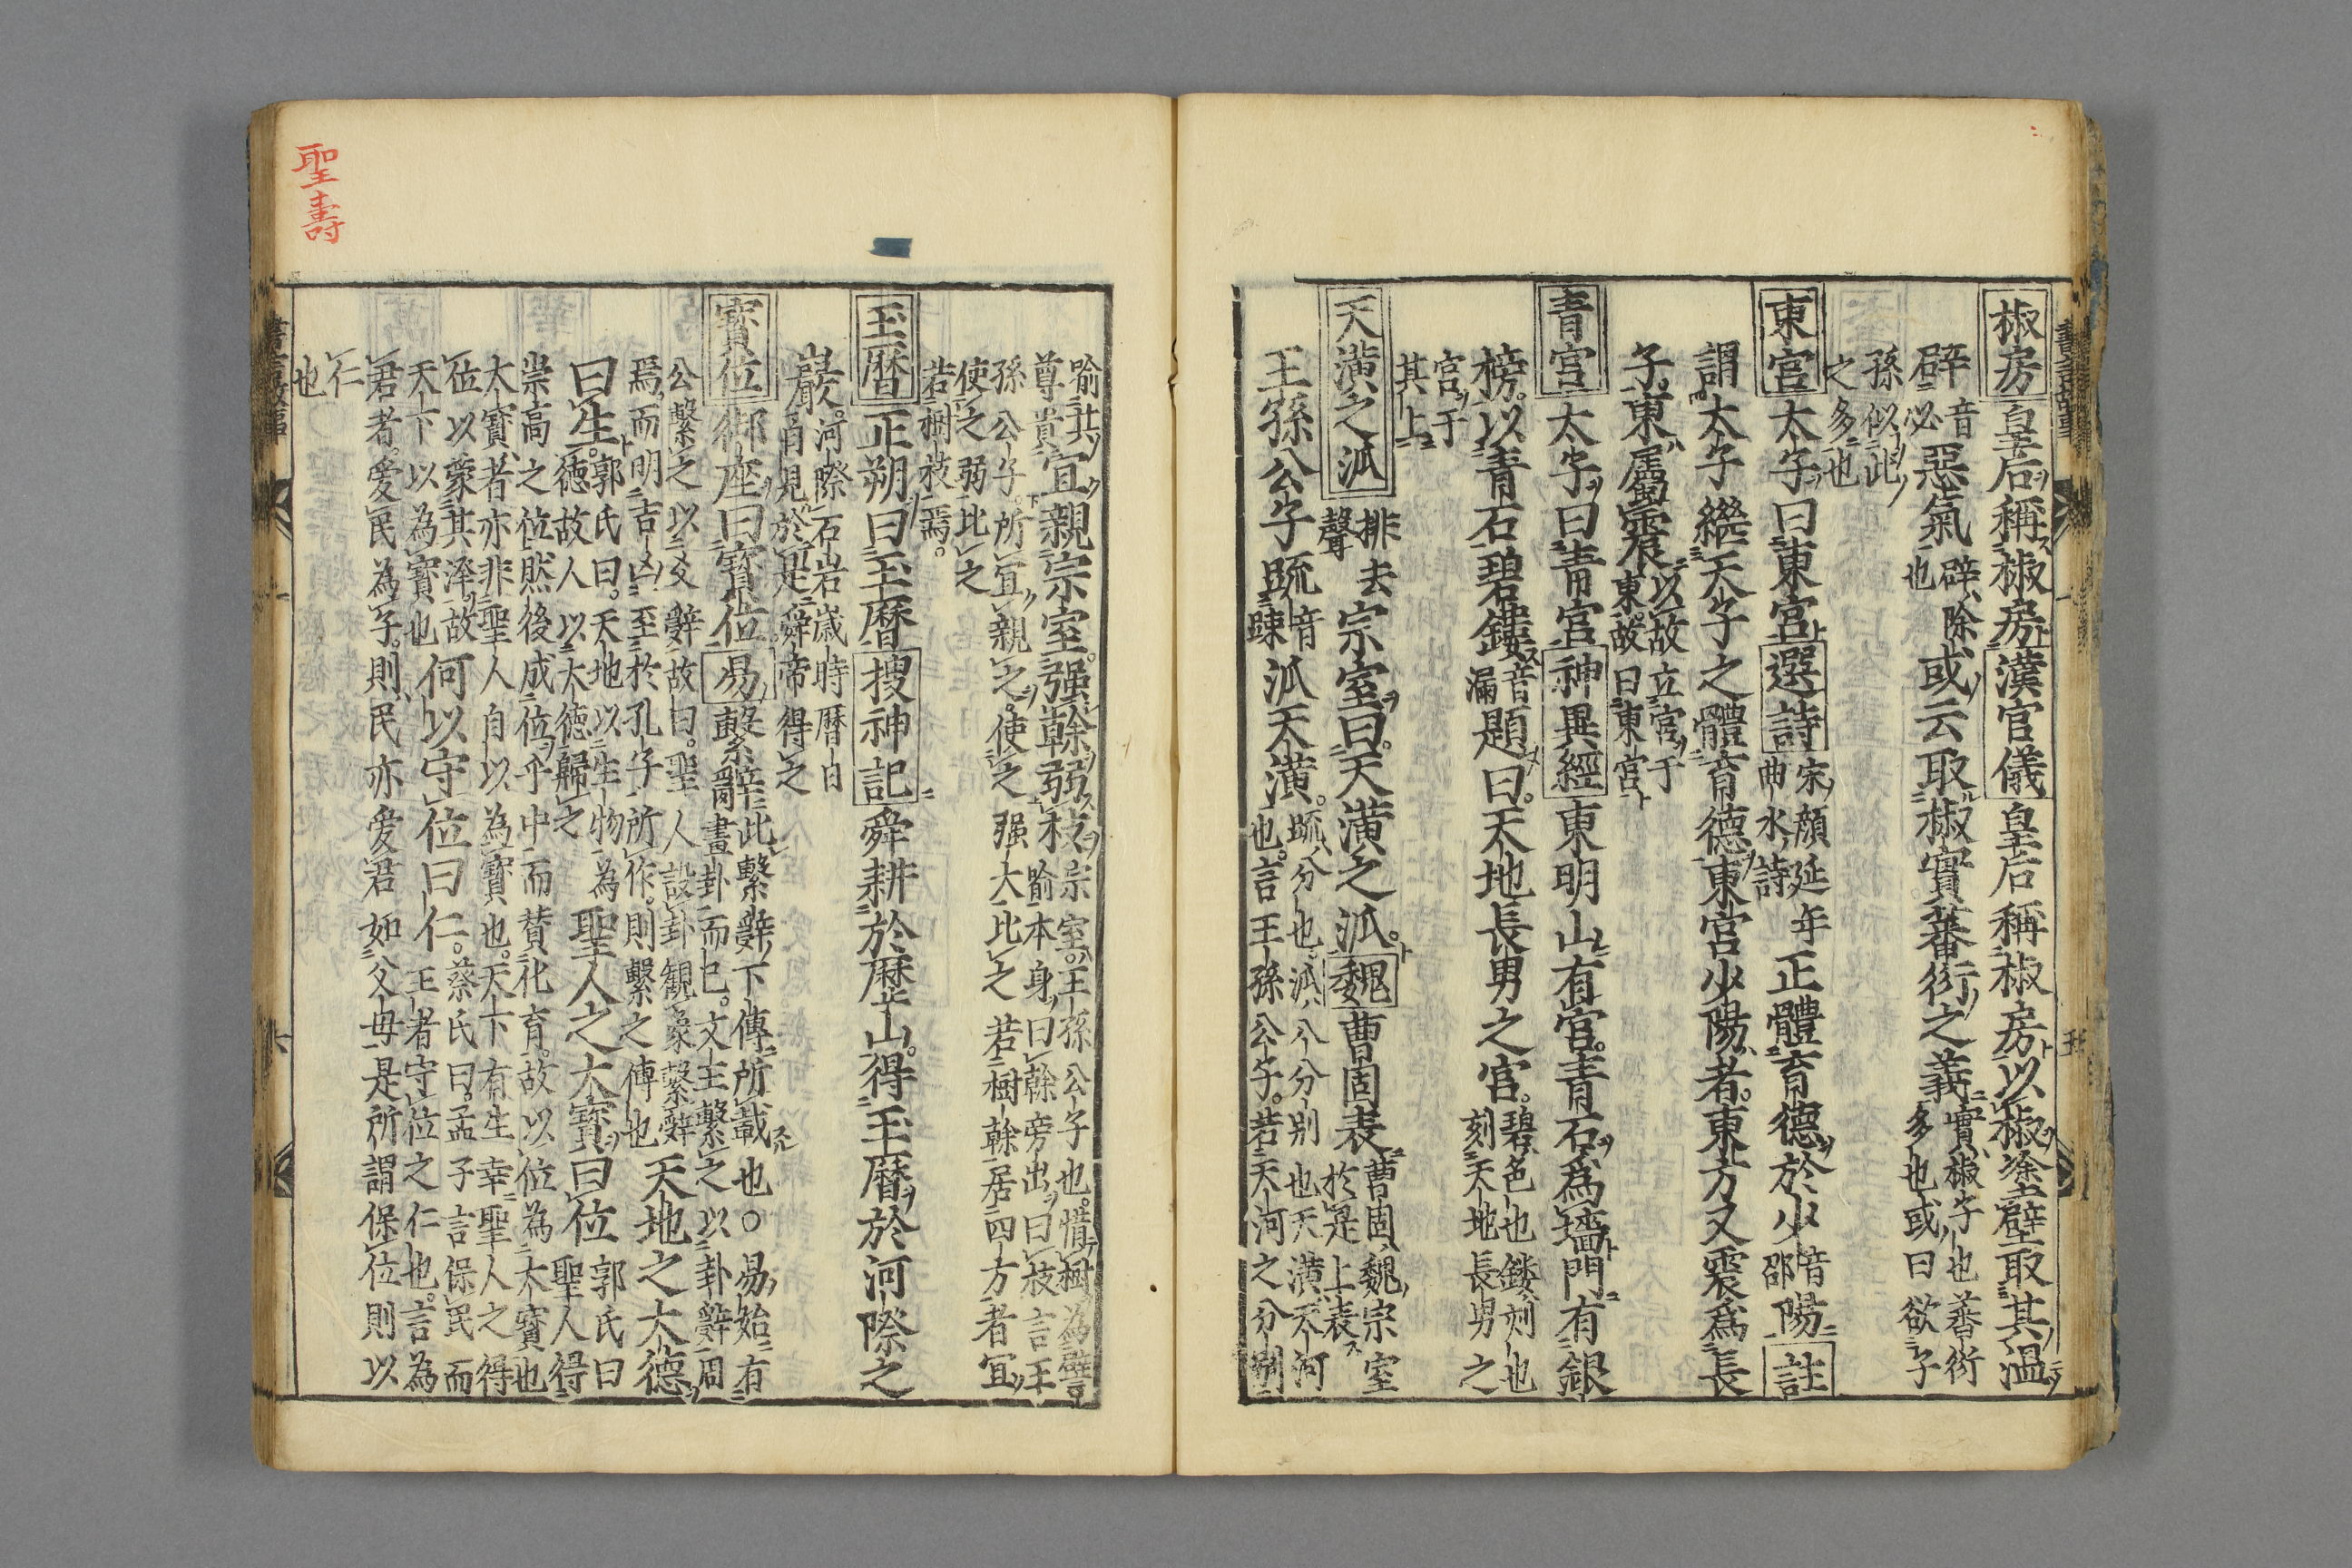 椒房 皇后稱椒房漢官儀皇后稱椒房以椒塗壁取其温
辟音必惡氣辟除也或云取椒實蕃衍之義實椒子也蕃衍多也或曰欲子
孫似此之多也
東宮 太子曰東宮選詩宋顔延年曲水詩正體育德於少音邵陽註
謂太子繼天子之體育德東宮少陽者東方又震爲長
子東属震以故立宮于東故曰東宮
青宮 太子曰青宮神異經東明山有宮青石爲墻門有銀
榜以青石碧鏤音漏題曰天地長男之宮碧色也鏤刻也刻天地長男之
宮于其上
天潢之派 排去聲宗室曰天潢之派魏曹固表曹固魏宗室於是上表
王孫公子䟽音踈派天潢䟽分也派分別也天潢天河也言王孫公子若天河之分別
喻其尊貴宜親宗室强幹弱枝宗室王孫公子也惜樹為譬言喻本身曰幹旁出曰枝言王
孫公子所宜親之使之强大比之若樹幹居四方者宜
使之弱比之若樹枝焉
玉暦 正朔曰玉暦搜神記舜耕於歷山得玉暦於河際之
巖河際石岩歳時暦日自見於是舜帝得之
寳位 御座曰寳位易繫辭此繫辭下傳所載也○易始有畫卦而已文王繫之以卦辭周
公繫之以爻辭故曰聖人設卦觀象繫辭焉而明吉凶至於孔子所作則繫之傳也天地之大德
曰生郭氏曰天地以生物為德故人以大德歸之聖人之大寳曰位郭氏曰聖人得
崇高之位然後成位乎中而賛化育故以位為大寳也大寳者亦非聖人自以為寳也天下有生幸聖人之得
位以蒙其澤故天下以為寳也何以守位曰仁蔡氏曰孟子言保民而王者守位之仁也言為
君者愛民為子則民亦愛君如父母是所謂保位則以
仁也
聖壽